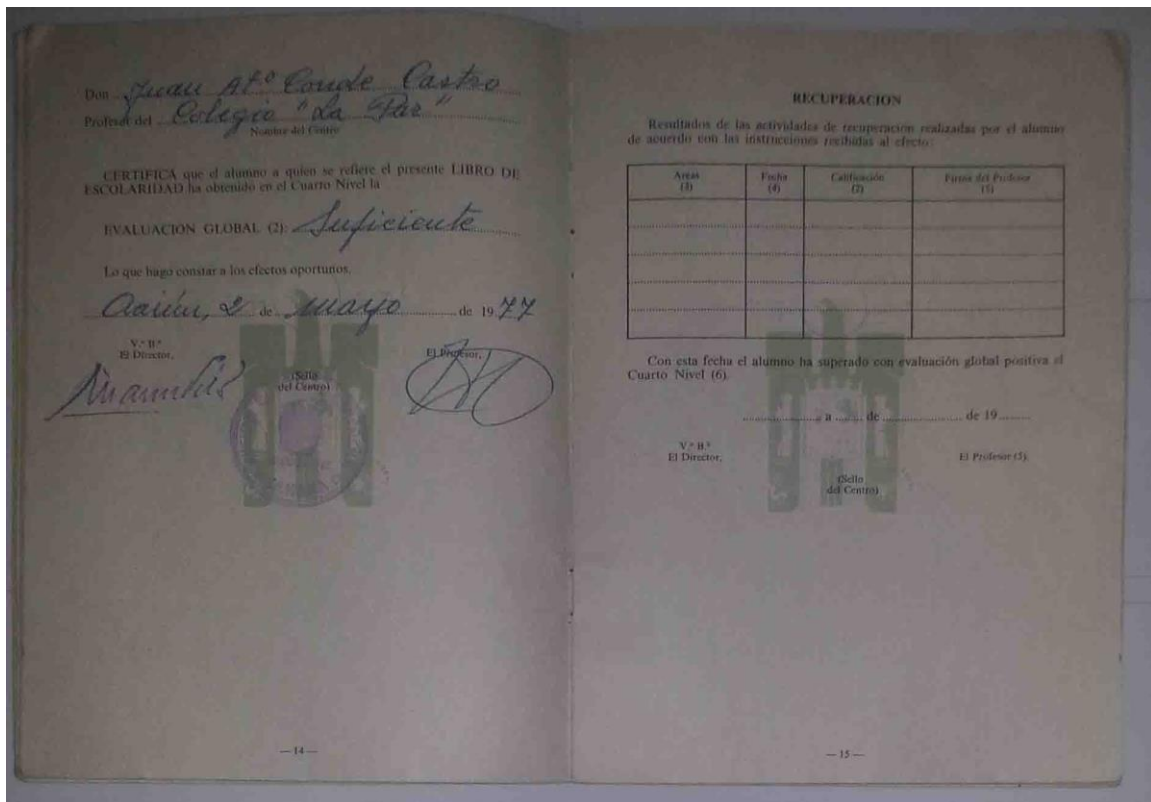 Don Juan Mª Conde Castro
Profesor del Colegio "La Paz"
Nombre del Centro
CERTIFICA que el alumno a quien se refiere el presente LIBRO DE
ESCOLARIDAD ha obtenido en el Cuarto Nivel la
EVALUACION GLOBAL (2): Suficiente
Lo que hago constar a los efectos oportunos.
2 de mayo de 1977
V.º B.º
El Director,
El Profesor,
(Sello
del Centro)
— 14 —
RECUPERACION
Resultados de las actividades de recuperación realizadas por el alumno
de acuerdo con las instrucciones recibidas al efecto:
Areas Fecha Calificación Firma del Profesor
(3) (4) (2) (5)
Con esta fecha el alumno ha superado con evaluación global positiva el
Cuarto Nivel (6).
a de de 19
V.º B.º
El Director,
El Profesor (5)
(Sello
del Centro)
— 15 —